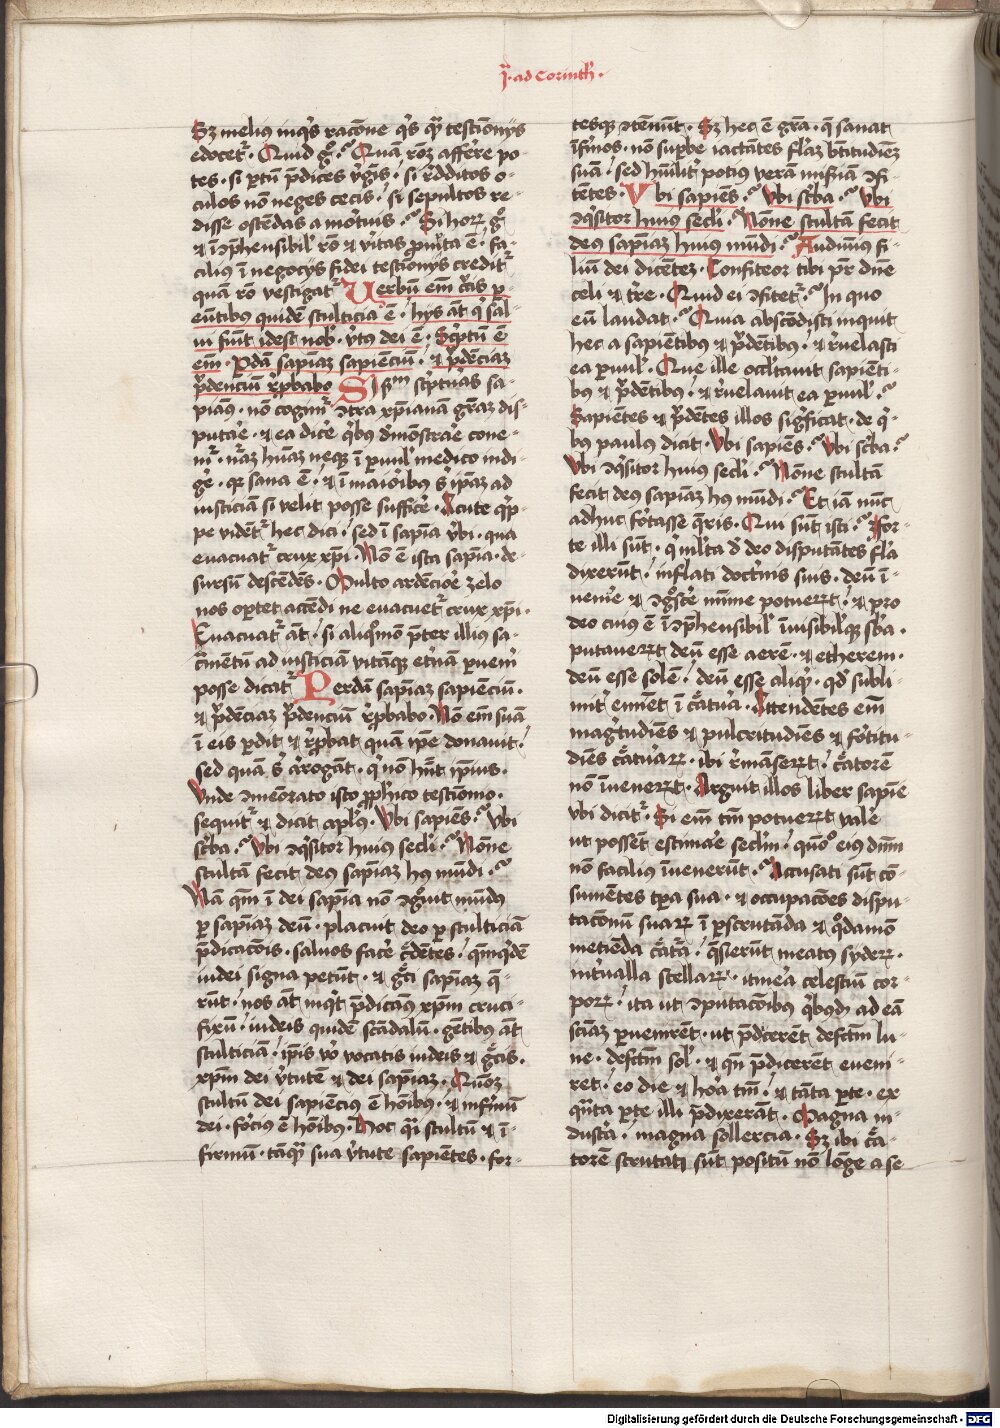 j̄· ad Corinth̄·
Sz meliꝯ inqͥs racōne qͥs qͣ testīonijs
edocetᷣ· Quid gͦ? Quā rōꝫ affeꝛ̄e po-
tes· si ꝑtū p̄dices v̓gīs / si r̓dditos o-
culos nō neges cecis / si sepultos re-
disse oſtēdas a moꝛtuis? Si horꝝ gͦ
⁊ īꝯp̄hensibil̓ rō ⁊ v̓itas ꝑuul̓ta ē· fa-
cilius ī negocijs fidei testīonijs creditᷣ
quā rō vestigatᷣ Verbū em̄ cͬcis ꝑ-
eūtibus quidē stulticia ē· hijs āt qͥ sal-
ui fiūt idest nob̓· v̓tꝯ dei ē· Scͥptū ē
em̄· Pdā sapiāꝫ sapienciū· ⁊ p̓dēciaꝫ
p̓denciū r̓pbabo Si sm̄ scͥptuꝛ̄as sa-
piāꝯ· nō cogimᷣ ꝯtra xp̄ianā grāꝫ dis-
putaꝛ̄e· ⁊ ea dicē qͥbꝯ d̓monstraꝛ̄e cone-
mᷣ· nāꝫ hūāꝫ neqꝫ ī ꝑuul̓ medico indi-
gē· qꝛ sana ē· ⁊ ī maioꝛibꝯ s̓ ip̄aꝫ ad
iusticiā si velit posse sufficē· Acute qͥp-
pe vidētᷣ hec dici / sed ī sapīa v̓bi· qua
euacuatᷣ crux xp̄i· Nō ē ista sapīa· de-
sursū descēdēs· Multo ardēcioꝛ̄e zelo
nos opꝛtet accēdi ne euacuetᷣ crux xp̄i·
Euacuatᷣ āt / si aliqͦmō pͭter illiꝯ sa-
cͣmētū ad iusticiā vitāqꝫ etͤnā ꝑuem̄
posse dicatᷣ Perdā sapiāꝫ sapienciū·
⁊ p̓dēciaꝫ p̓denciū r̓pbabo· Nō em̄ suā
ī eis ꝑdit ⁊ r̓pbat quā ip̄e donauit /
sed quā s̓ aꝛ̄rogāt· qͥ nō hn̄t ip̄ius·
Vnde ꝯmēorato isto ꝓphico testīomo·
sequitᷣ ⁊ dicit apl̓ꝯ· Vbi sapiēs? Vbi
scͥba? Vbi ꝯqͥsitor huius secl̓i? Nōne
stultā fecit deꝯ sapiāꝫ hꝯ mūdi?
Nā qm̄ ī dei sapīa nō ꝯgͦuit mūdꝯ
ꝑ sapiāꝫ deū· placuit deo ꝑ stulticiā
p̄dicacōis· saluos facē cͤdētes / qm̄qͥdē
iudei signa petūt· ⁊ gͤci sapiāꝫ q̄-
rūt / nos āt inqͭ p̄dicāꝯ xp̄m cruci-
fixū / iudeis quidē scādalū· gētibus āt
stulticiā / ip̄is v̓o vocatis iudeis ⁊ gͤcis·
xp̄m dei v̓tutē ⁊ dei sapiāꝫ· Quōꝫ
stultū dei sapienciꝯ ē hōibus / ⁊ infirmū
dei· foꝛciꝯ ē hōibus· Hoc qͣi stultū ⁊ ī-
firmū· tāqͣ sua v̓tute sapiētes· for-
tesqꝫ ꝯtēnūt· Sz hec ē grā· q̄ sanat
īfiꝛ̄mos· nō supb̓e iactātes fl̓aꝫ bn̄titudiēꝫ
suā / sed hūil̓it̓ potiꝯ verā misͥiā ꝯfi-
tētes· Vbi sapiēs? Vbi scͥba? Vbi
ꝯqͥsitor huiꝯ secl̓i? Nōne stultā fecit
deꝯ sapiāꝫ huiꝯ mūdi? Audiuiꝯ fi-
liū dei dicētez· Confiteor tibi pr̄ dn̄e
celi ⁊ tr̄e· Quid ei ꝯfitetᷣ? In quo
eū laudat? Quia abscōdisti inquit
hec a sapiētibꝯ ⁊ p̓dētibꝯ / ⁊ r̓uelasti
ea ꝑuul̓· Que ille occl̓tauit sapiēti-
bꝯ ⁊ p̓dētibꝯ / ⁊ r̓uelauit ea ꝑuul̓?
Sapiētes ⁊ p̓dētes illos sigͥficat· de qͥ-
bꝯ paulꝯ dicit· Vbi sapiēs? Vbi scͥba?
Vbi ꝯqͥsitor huiꝯ secl̓i? Nōne stultā
fecit deꝯ sapiāꝫ hꝯ mūdi? Et iā nūc
adhuc foꝛtasse q̄ris· Qui sūt isti? foꝛ-
te illi sūt· qͥ ml̓ta d̓ deo disputātes fl̓a
dixerūt / inflati doctͥnis suis· deū ī-
uenīe ⁊ ꝯgͦscē mīme potueꝝt / ⁊ pro
deo cuiꝯ ē īꝯp̄hensibil̓ īuisibil̓qꝫ sb̄a·
putaueꝝt deū esse aerē· ⁊ etherem·
deū esse solē / deū esse aliqͥ· qd̓ subli-
mit̓ emīet ī cͤatua· Attendētes em̄
magͥtudiēs ⁊ pulcritudiēs ⁊ foꝛtitu-
diēs cͤatuaꝝ· ibi r̓māseꝝt / cͤatorē
nō īueneꝝt· Arguit illos liber sapīe
vbi dicitᷣ· Si em̄ tm̄ potueꝝt valē
ut possēt estimaꝛ̄e secl̓m / quōͦ eiꝯ dn̄m
nō faciliꝯ īuenerūt? Accusati sūt cō-
sumētes tp̄a sua· ⁊ occupacōes dispu-
tacōnū suaꝝ ī ꝑscrutāda ⁊ qͦdamō
metiēda cͤatᷓa / q̄sierūt meatꝯ sydeꝝ·
intͤualla stellaꝝ· itineꝛ̄a celestiū cor-
poꝝ / ita ut ꝯputacōibus qͥbꝰdā ad eā
sciāꝫ ꝑuenirēt· ut p̄dicerēt defctm̄ lu-
ne· defctm̄ sol̓· ⁊ qn̄ p̄dicerēt eueni-
ret / eo die ⁊ hoꝛa tm̄ / ⁊ tāta ꝑte· ex
qͣnta ꝑte illi p̄dixerāt· Magna in-
dustͥa· magna sollercia· Sz ibi cͤa-
torē scrutati sūt positū nō lōge a se
Digitalisierung gefördert durch die Deutsche Forschungsgemeinschaft · DFG